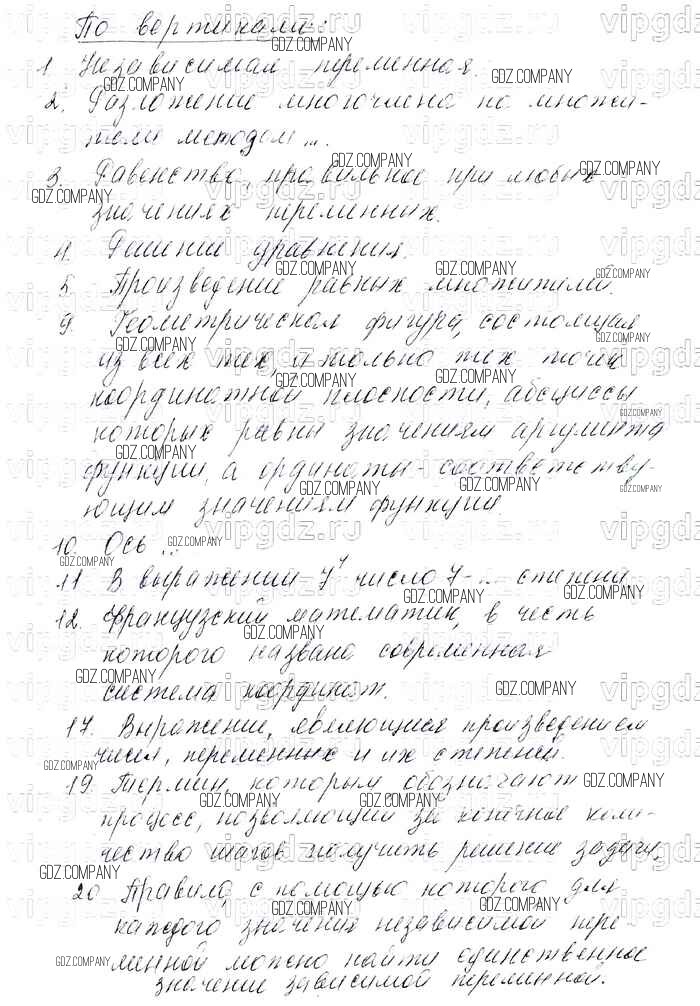 По вертикали:
1. Независимая переменная.
2. Разложение многочлена на множи-
тели методом ...
3. Равенство, правильное при любых
значениях переменных.
4. Решение уравнения.
5. Произведение равных множителей.
9. Геометрическая фигура, состоящая
из всех тех, и только тех точек
координатной плоскости, абсциссы
которых равны значениям аргумента
функции, а ординаты - соответству-
ющим значениям функции
10. Ось ...
11 В выражении 7⁴ число 7 - ... степени
12. Французский математик, в честь
которого названа современная
система координат.
17. Выражение, являющееся произведением
чисел, переменных и их степеней.
19. Термин, которым обозначают
процесс, позволяющий за конечное коли-
чество шагов получить решение задачи.
20 Правило, с помощью которого для
каждого значения независимой пере-
менной можно найти единственное
значение зависимой переменной.